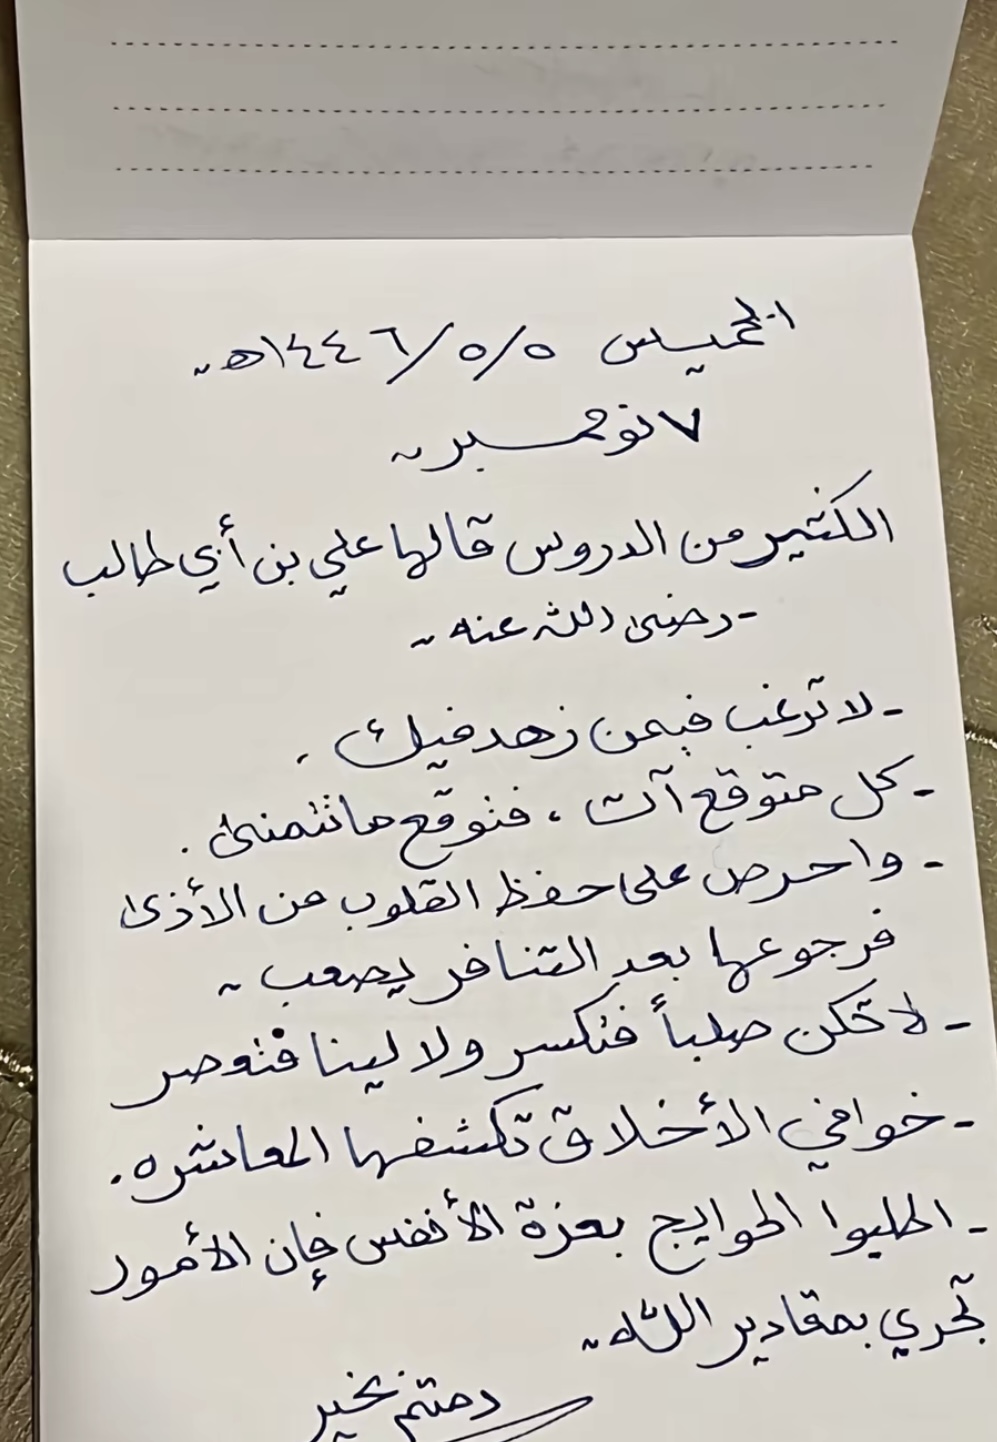 الخميس ١٤٤٦/٥/٥هـ
٧ نوفمبر
الكثير من الدروس قالها علي بن أبي طالب
- رضى الله عنه -
- لا ترغب فيمن زهد فيك .
- كل متوقع آت ، فتوقع ما تتمنى .
- واحرص على حفظ القلوب من الأذى
فرجوعها بعد التنافر يصعب
- لا تكن صلباً فتكسر ولا لينا فتعصر
- خوافي الأخلاق تكشفها المعاشره .
- اطلبوا الحوايج بعزة الأنفس فإن الأمور
تجري بمقادير الله
دمتم بخير